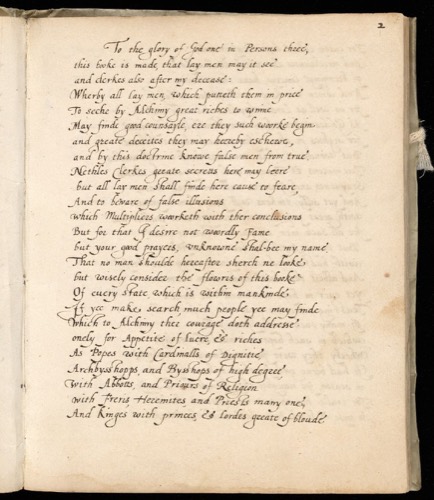 2
To the glory of God one in Persons three,
this booke is made, that lay men may it see
and clerkes also after my decease:
Wherby all lay men, which putteth them in prece
To seche by Alchimy great riches to winne
May finde good counsayle, ere they such woorke begin
and greate deceites they may hereby eschewe,
and by this doctrine knowe false men from true
Nethles Clerkes greate secrens here may leere
but all lay men shall finde here cause to feare,
And to beware of false illusions
which Multipliers woorketh with ther conclusions
But for that I desire not woordly fame
but your good prayers, unknowne shal-bee my name
That no man shoulde hereafter sherch ne looke
but wisely consider the flowres of this booke
Of every state which is within mankinde
If yee make search much people yee may finde
Which to Alchimy ther courage doth addresse
onely for Appetite of lucre & riches
As Popes with Cardinalls of Dignitie
Archbysshopps and Bysshops of high degree
With Abbotts, and Priours of Religion
with freris Heremites and Priests many one,
And Kinges with princes, & lordes greate of bloude